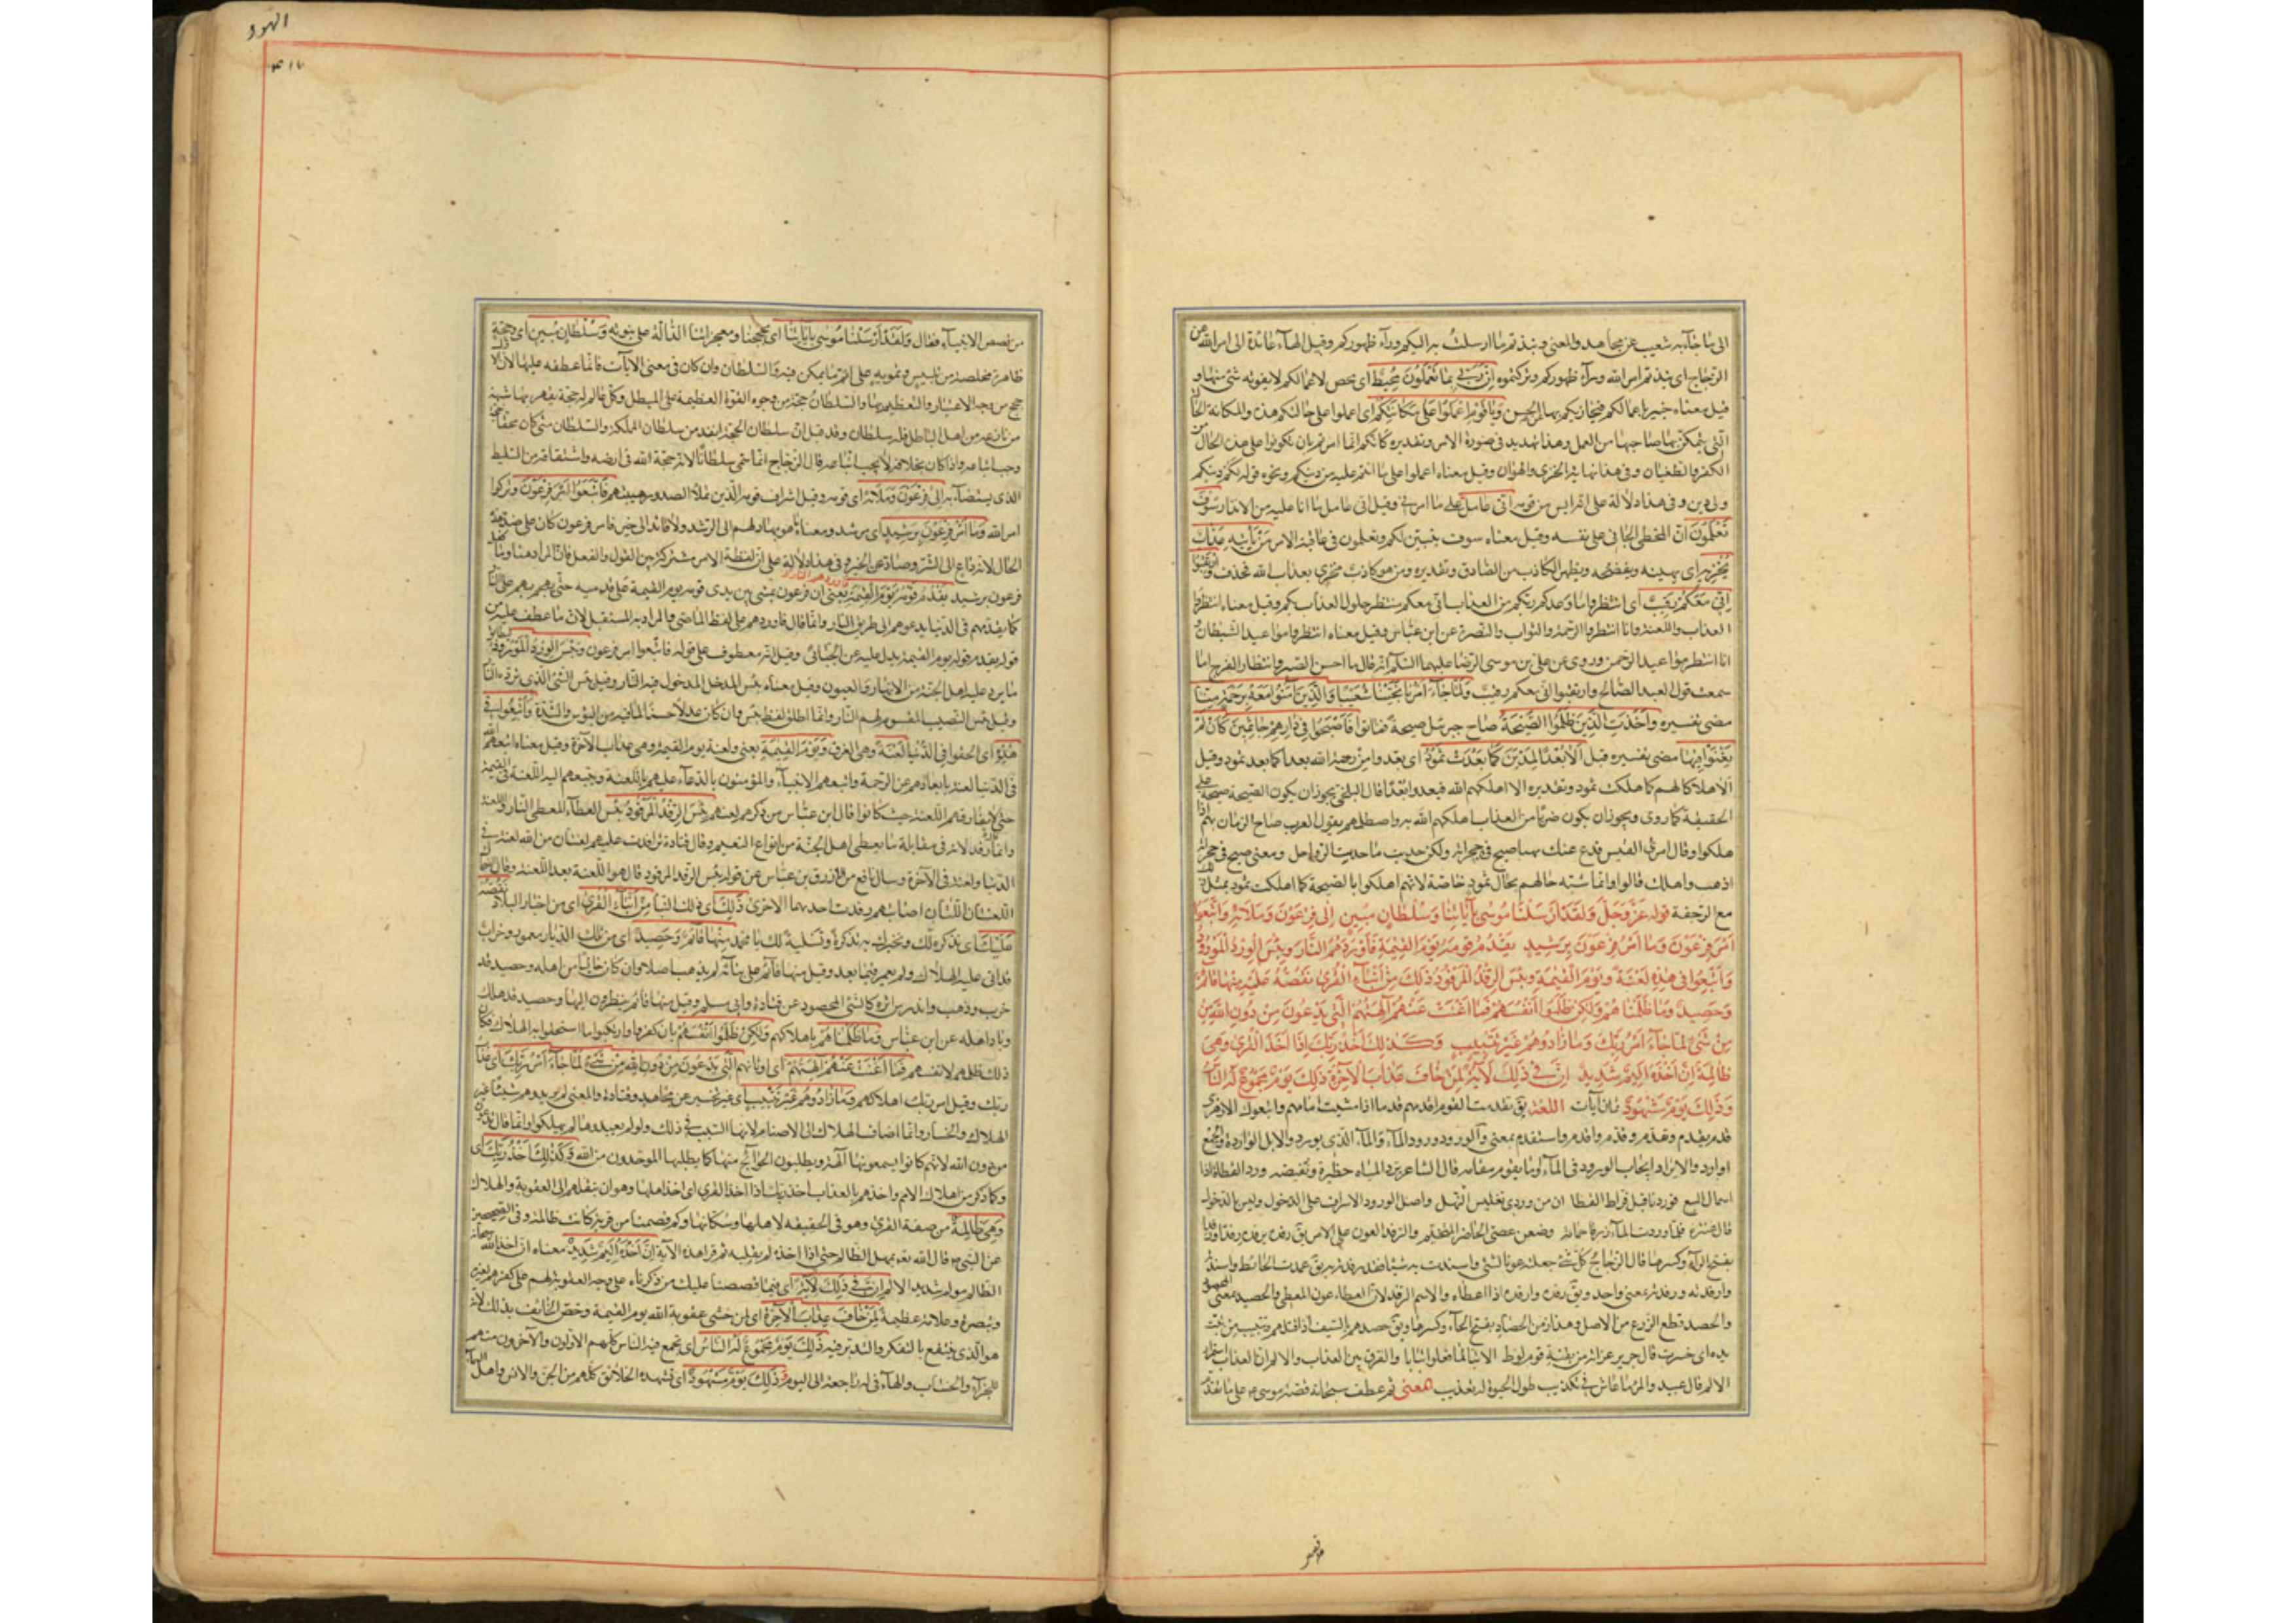 الى ما جاء به شعيب عن مجاهد والمعنى ونبذتم ما ارسلت به اليكم وراء ظهوركم وقيل الهاء عائدة الى امر الله عن
الزجاج اى نبذتم امر الله وراء ظهوركم وتركتموه اِنَّ رَبّى بِمَا تَعْمَلُونَ مُحِيطٌ اى محص لاعمالكم لا يفوته شئ منها و
قيل معناه خبير باعمالكم فيجازيكم بها عن الحسن وَيَا قَوْمِ اعْمَلُوا عَلَى مَكَانَتِكُمْ اى اعملوا على حالتكم هذه والمكانة الحال
التى يتمكن بها صاحبها من العمل وهذا تهديد فى صورة الامر وتقديره كانكم انما امرتم بان تكونوا على هذه الحال من
الكفر والطغيان وفى هذا نهاية الخزى والهوان وقيل معناه اعملوا على ما انتم عليه من دينكم ونحوه قوله لكم دينكم
ولى دين وفى هذا دلالة على انه ايس من قومه اِنّى عَامِلٌ على ما امرنى وقيل انى عامل بما انا عليه من الانذار سَوْفَ
تَعْلَمُونَ ان المخطئ الجانى على نفسه وقيل معناه سوف يتبين لكم وتعلمون فى عاقبة الامر مَنْ يَأْتِيهِ عَذَابٌ
يُخْزِيهِ اى يهينه ويفضحه ويظهر الكاذب من الصادق وتقديره ومن هو كاذب مخزى بعذاب الله فحذف وَارْتَقِبُوا
اِنّى مَعَكُمْ رَقِيبٌ اى انتظروا ما وعدكم ربكم من العذاب انى معكم منتظر حلول العذاب بكم وقيل معناه انتظروا
العذاب واللعنة وانا انتظر الرحمة والثواب والنصرة عن ابن عباس وقيل معناه انتظروا مواعيد الشيطان و
انا انتظر مواعيد الرحمن وروى عن على بن موسى الرضا عليهما السلام انه قال ما احسن الصبر وانتظار الفرج اما
سمعت قول العبد الصالح وارتقبوا انى معكم رقيب وَلَمَّا جَاءَ اَمْرُنَا نَجَّيْنَا شُعَيْبًا وَالَّذِينَ آمَنُوا مَعَهُ بِرَحْمَةٍ مِنَّا
مضى تفسيره وَاَخَذَتِ الَّذِينَ ظَلَمُوا الصَّيْحَةُ صاح جبرئيل صيحة فماتوا فَاَصْبَحُوا فِى دِيَارِهِمْ جَاثِمِينَ كَاَنْ لَمْ
يَغْنَوْا فِيهَا مضى تفسيره قبل اَلَا بُعْدًا لِمَدْيَنَ كَمَا بَعِدَتْ ثَمُودُ اى بعدوا من رحمة الله بعدا كما بعد ثمود وقيل
الا هلاكا لهم كما هلكت ثمود وتقديره الا اهلكهم الله فبعدوا بعدا قال البلخى يجوز ان يكون الصيحة صيحة على
الحقيقة كما روى ويجوز ان يكون ضربا من العذاب اهلكهم الله به واصطلمهم يقول العرب صاح الزمان بهم اذا
هلكوا وقال امرئ القيس فدع عنك نهبا صيح فى حجراته ولكن حديث ما حديث الرواحل ومعنى صيح فى حجراته
اذهب واهلك قالوا وانما شبه حالهم بحال ثمود خاصة لانهم اهلكوا بالصيحة كما اهلكت ثمود بمثل ذلك
مع الرجفة قوله عَزَّ وَجَلَّ وَلَقَدْ اَرْسَلْنَا مُوسَى بِآيَاتِنَا وَسُلْطَانٍ مُبِينٍ اِلَى فِرْعَوْنَ وَمَلَائِهِ فَاتَّبَعُوا
اَمْرَ فِرْعَوْنَ وَمَا اَمْرُ فِرْعَوْنَ بِرَشِيدٍ يَقْدُمُ قَوْمَهُ يَوْمَ الْقِيمَةِ فَاَوْرَدَهُمُ النَّارَ وَبِئْسَ الْوِرْدُ الْمَوْرُودُ
وَاُتْبِعُوا فِى هَذِهِ لَعْنَةً وَيَوْمَ الْقِيمَةِ بِئْسَ الرِّفْدُ الْمَرْفُودُ ذَلِكَ مِنْ اَنْبَاءِ الْقُرَى نَقُصُّهُ عَلَيْكَ مِنْهَا قَائِمٌ
وَحَصِيدٌ وَمَا ظَلَمْنَاهُمْ وَلَكِنْ ظَلَمُوا اَنْفُسَهُمْ فَمَا اَغْنَتْ عَنْهُمْ آلِهَتُهُمُ الَّتِى يَدْعُونَ مِنْ دُونِ اللَّهِ
مِنْ شَئٍ لَمَّا جَاءَ اَمْرُ رَبِّكَ وَمَا زَادُوهُمْ غَيْرَ تَتْبِيبٍ وَكَذَلِكَ اَخْذُ رَبِّكَ اِذَا اَخَذَ الْقُرَى وَهِىَ
ظَالِمَةٌ اِنَّ اَخْذَهُ اَلِيمٌ شَدِيدٌ اِنَّ فِى ذَلِكَ لَآيَةً لِمَنْ خَافَ عَذَابَ الْآخِرَةِ ذَلِكَ يَوْمٌ مَجْمُوعٌ لَهُ النَّاسُ
وَذَلِكَ يَوْمٌ مَشْهُودٌ ثمان آيات اللغة يق تقدمت القوم اقدمهم قدما اذا مشيت امامهم واتبعوك الازهرى
قدم يقدم وتقدم وقدم واقدم واستقدم بمعنى والورد ورود الماء والماء الذى يورد والابل الواردة والجمع
اوراد والايراد ايجاب الورود فى الماء او ما يقوم مقامه قال الشاعر يرد المياه حظيرة ونفيضه ورد القطاة اذا
اسمال التبع فوردنا قبل فراط القطا ان من وردى تغليس النهل واصل الورود الاشراف على الدخول وليس بالدخول
قال عنترة فلما وردت الماء زرقا جمامه وضعن عصى الحاضر المتخيم والرفد العون على الامر يق رفده يرفده رفدا ورفدا
بفتح الراء وكسرها قال الزجاج كل شئ جعلته عونا لشئ واسندت به شيئا فقد رفدته يق عمدت الحائط واسندته
وارفدته ورفدته بمعنى واحد ويق رفده وارفده اذا اعطاه والاسم الرفد لان العطاء عون المعطى والحصيد بمعنى المحصود
والحصد قطع الزرع من الاصل وهذا زمن الحصاد بفتح الحاء وكسرها ويق حصدهم بالسيف اذا قتلهم وتتبيب من تبت
يده اى خسرت قال جرير عرادة من بقية قوم لوط الا تبا لما فعلوا تبابا والفرق بين العذاب والالم ان العذاب استمرار
الالم قال عبيد والمرء ما عاش فى تكذيب طول الحيوة له تعذيب المعنى ثم عطف سبحانه قصة موسى ع على ما تقدم
من قصص
الهود
٤١٧
من قصص الانبياء فقال وَلَقَدْ اَرْسَلْنَا مُوسَى بِآيَاتِنَا اى بحججنا ومعجزاتنا الدالة على نبوته وَسُلْطَانٍ مُبِينٍ اى وحجة
ظاهرة مخلصة من تلبيس وتمويه على اتم ما يمكن فيه والسلطان وان كان فى معنى الآيات فانما عطفه عليها لان الادلة
حجج من وجه الاعتبار والتعظيم بها والسلطان حجة من وجوه القوة العظيمة على المبطل وكل عالم له حجة يقهر بها شبهة
من نازعه من اهل الباطل فله سلطان وقد قيل ان سلطان الحجة انفذ من سلطان المملكة والسلطان متى كان محقا حجة
وجب اتباعه واذا كان بخلافه لا يجب اتباعه قال الزجاج انما سمى سلطانا لانه حجة الله فى ارضه واشتقاقه من السليط
الذى يستضاء به اِلَى فِرْعَوْنَ وَمَلَائِهِ اى قومه وقيل اشراف قومه الذين تملأ الصدور هيبتهم فَاتَّبَعُوا اَمْرَ فِرْعَوْنَ وتركوا
امر الله وَمَا اَمْرُ فِرْعَوْنَ بِرَشِيدٍ اى مرشد ومعناه ما هو بهاد لهم الى الرشد ولا قائد الى خير فامر فرعون كان على ضد هذه
الحال لانه داع الى الشر وصاد عن الخير وفى هذا دلالة على ان لفظة الامر مشتركة بين القول والفعل فان المراد هنا وما فعل
فرعون برشيد يَقْدُمُ قَوْمَهُ يَوْمَ الْقِيمَةِ فاوردهم النار يعنى ان فرعون يمشى بين يدى قومه يوم القيمة على قدميه حتى يهجم بهم على النار
كما يقدمهم فى الدنيا يدعوهم الى طريق النار وانما قال فاوردهم على لفظ الماضى والمراد به المستقبل لان ما عطف عليه من
قوله يقدم قومه يوم القيمة يدل عليه عن الجبائى وقيل انه معطوف على قوله فاتبعوا امر فرعون وَبِئْسَ الْوِرْدُ الْمَوْرُودُ
ما يرد عليه اهل الجنة من الانهار والعيون وقيل معناه بئس المدخل المدخول فيه النار وقيل بئس الشئ الذى يرده النار
وقيل بئس النصيب المقسوم لهم النار وانما اطلق لفظ بئس وان كان عدلا حسنا لما فيه من البؤس والشدة وَاُتْبِعُوا فِى
هَذِهِ اى الحقوا فى الدنيا لَعْنَةً وهى الغرق وَيَوْمَ الْقِيمَةِ يعنى ولعنة يوم القيمة وهى عذاب الآخرة وقيل معناه اتبعهم الله
فى الدنيا لعنة بابعادهم عن الرحمة واتبعهم الانبياء والمؤمنون بالدعاء عليهم باللعنة وتتبعهم اليه اللعنة فى القيمة
حتى لا يفارقهم اللعنة حيث كانوا قال ابن عباس من ذكرهم لعنهم بِئْسَ الرِّفْدُ الْمَرْفُودُ بئس العطاء المعطى النار واللعنة
وانما رفد لانه فى مقابلة ما يعطى اهل الجنة من انواع النعيم وقال قتادة ترافدت عليهم لعنتان من الله لعنة فى
الدنيا ولعنة فى الآخرة وسال نافع من الازرق بن عباس عن قوله بئس الرفد المرفود قال هو اللعنة بعد اللعنة وقال الضحاك
اللعنتان اللتان اصابتهم رفدت احدهما الاخرى ذَلِكَ اى ذلك النبأ مِنْ اَنْبَاءِ الْقُرَى اى من اخبار البلاد نَقُصُّهُ
عَلَيْكَ اى نذكره لك ونخبرك به تذكرة وتسلية لك يا محمد مِنْهَا قَائِمٌ وَحَصِيدٌ اى من تلك الديار معمور وخراب
قد اتى عليه الهلاك ولم يعمر فيما بعد وقيل منها قائم على بنائه لم يذهب اصلا وان كان خاليا من اهله وحصيد قد
خرب وذهب واندرس اثره كالشئ المحصود عن قتادة وابى مسلم وقيل منها قائم ينظرون اليها وحصيد قد هلك
وباد اهله عن ابن عباس وَمَا ظَلَمْنَاهُمْ باهلاكهم وَلَكِنْ ظَلَمُوا اَنْفُسَهُمْ بان كفروا وارتكبوا ما استحقوا به الهلاك فكان
ذلك ظلمهم لانفسهم فَمَا اَغْنَتْ عَنْهُمْ آلِهَتُهُمْ اى اوثانهم الَّتِى يَدْعُونَ مِنْ دُونِ اللَّهِ مِنْ شَئٍ لَمَّا جَاءَ اَمْرُ رَبِّكَ اى عذاب
ربك وقيل امر ربك اهلاكهم وَمَا زَادُوهُمْ غَيْرَ تَتْبِيبٍ اى غير تخسير عن مجاهد وقتادة والمعنى لم يزيدهم شيئا غير
الهلاك والخسار وانما اضاف الهلاك الى الاصنام لانها السبب فى ذلك ولو لم يعبدوها لم يهلكوا وانما قال يدعون
من دون الله لانهم كانوا يسمونها آلهة ويطلبون الحوائج منها كما يطلبها الموحدون من الله وَكَذَلِكَ اَخْذُ رَبِّكَ اى
وكما ذكر من اهلاك الامم واخذهم بالعذاب اخذ ربك اذا اخذ القرى اى اخذ اهلها وهو ان ينقلهم الى العقوبة والهلاك
وَهِىَ ظَالِمَةٌ من صفة القرى وهو فى الحقيقة لاهلها وسكانها وكم قصمنا من قرية كانت ظالمة وفى الصحيحين
عن النبى ص قال الله تع يمهل الظالم حتى اذا اخذه لم يفلته ثم قرا هذه الآية اِنَّ اَخْذَهُ اَلِيمٌ شَدِيدٌ معناه ان اخذ الله سبحانه
الظالم مولم شديد الالم اِنَّ فِى ذَلِكَ لَآيَةً اى فيما قصصنا عليك من ذكرناه على وجه العقوبة لهم على كفرهم لعبرة
وتبصرة وعلامة عظيمة لِمَنْ خَافَ عَذَابَ الْآخِرَةِ اى لمن خشى عقوبة الله يوم القيمة وخص الخائف بذلك لانه
هو الذى ينتفع بالتفكر والتدبر فيه ذَلِكَ يَوْمٌ مَجْمُوعٌ لَهُ النَّاسُ اى تجمع فيه الناس كلهم الاولون والآخرون منهم
للجزاء والحساب والهاء فى له راجعة الى اليوم وَذَلِكَ يَوْمٌ مَشْهُودٌ اى تشهده الخلائق كلهم من الجن والانس واهل السماء